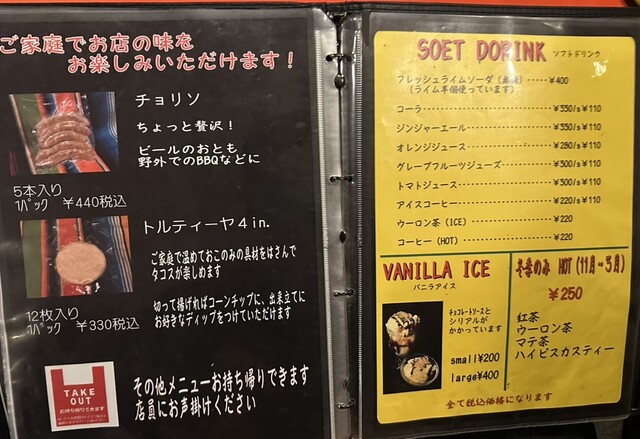 ご家庭でお店の味を
お楽しみいただけます！
チョリソ
ちょっと贅沢！
ビールのおとも
野外でのBBQなどに
5本入り
1ﾊﾟｯｸ ￥440税込
トルティーヤ４in.
ご家庭で温めておこのみの具材をはさんで
タコスが楽しめます
切って揚げればコーンチップに、出来立てに
お好きなディップをつけていただけます
12枚入り
1ﾊﾟｯｸ ￥330税込
TAKE
OUT
お持ち帰りできます
その他メニューお持ち帰りできます
店員にお声掛けください
SOET DORINK ソフトドリンク
フレッシュライムソーダ ¥400
(ライム半個使っています)
コーラ ¥330/s¥110
ジンジャーエール ¥330/s¥110
オレンジジュース ¥280/s¥110
グレープフルーツジュース ¥300/s¥110
トマトジュース ¥300/s¥110
アイスコーヒー ¥220/s¥110
ウーロン茶 (ICE) ¥220
コーヒー (HOT) ¥220
VANILLA ICE
バニラアイス
ﾁｮｺﾚｰﾄｿｰｽと
シリアルが
かかっています
small¥200
large¥400
冬季のみ HOT (11月-3月)
¥250
紅茶
ウーロン茶
マテ茶
ハイビスカスティー
全て税込価格になります